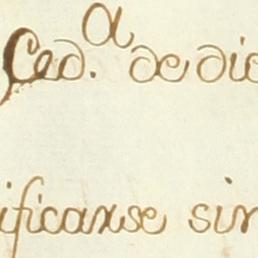 Ced.ª de dic
ificarse sin